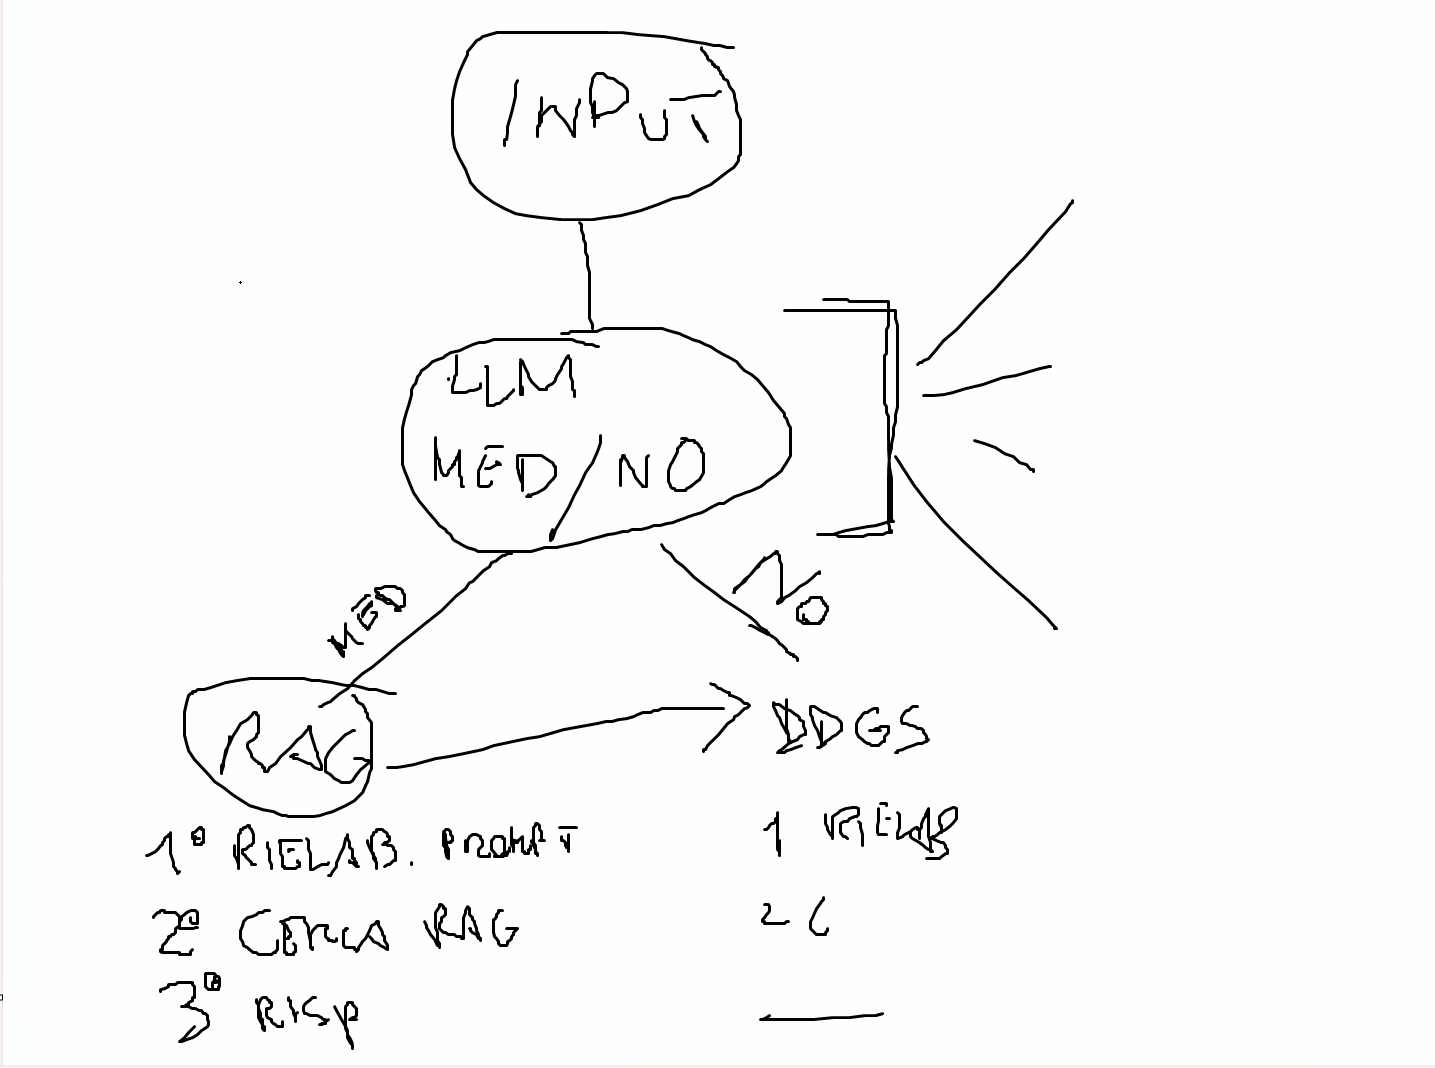 INPUT
LLM
MED/NO
MED
NO
RAG
DDGS
1° RIELAB. PROMPT
2° CERCA RAG
3° RISP
1 RIELAB
2 C